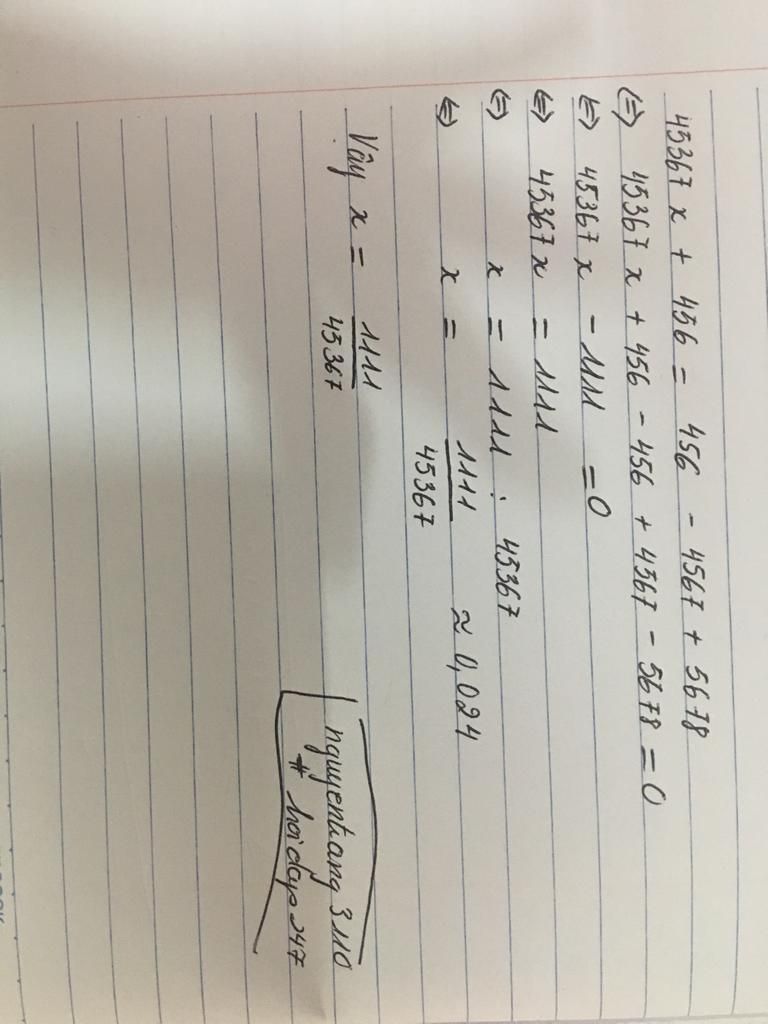 45367 x + 456 = 456 - 4567 + 5678
(=) 45367 x + 456 - 456 + 4567 - 5678 = 0
(=) 45367 x - 1111 = 0
(=) 45367 x = 1111
(=) x = 1111 : 45367
(=) x = 1111/45367 ≈ 0,024
Vậy x = 1111/45367
nguyentrang3110
# hoidap247